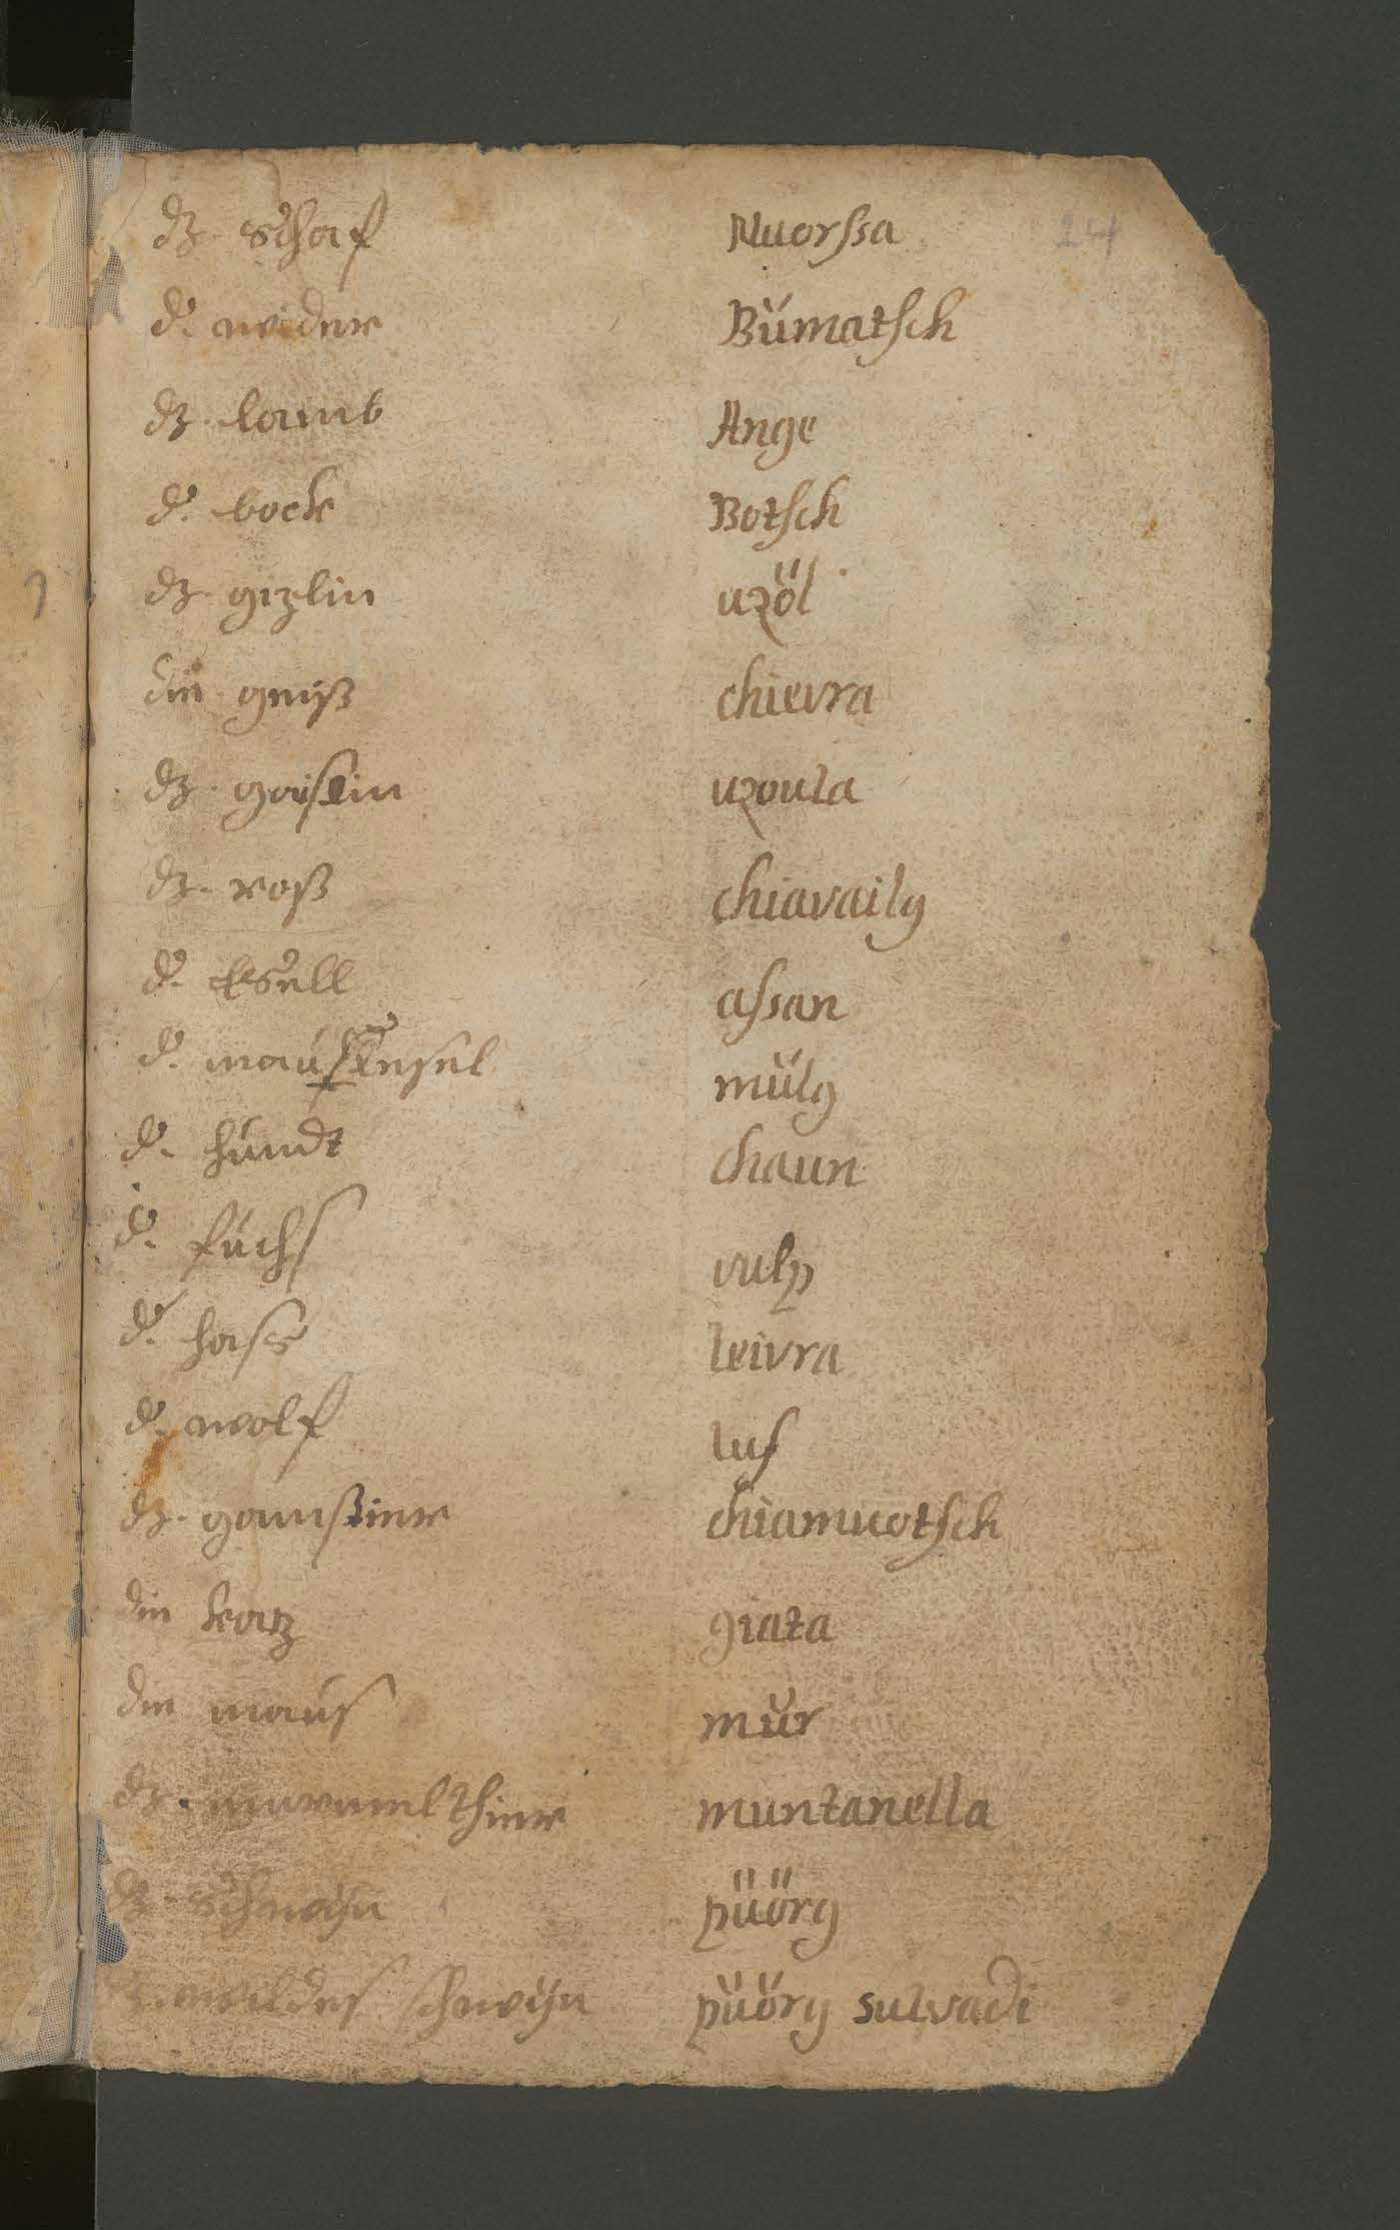 24
dz schaf Nuorssa
d. wider Bümatsch
dz lamb Ange
d. bock Botsch
dz gizlin uzöl
die geiß chievra
dz gaislin uzoula
dz roß chiavailg
d. Esell assan
d. maulesel mülg
d. hundt chaun
d. fuchs vulp
d. hass leivra
d. wolf luf
dz gamßtier chiamuotsch
die katz giata
die maus mür
dz murmelthier muntanella
dz schwyn püörg
dz wildes schwyn püörg sulvadi